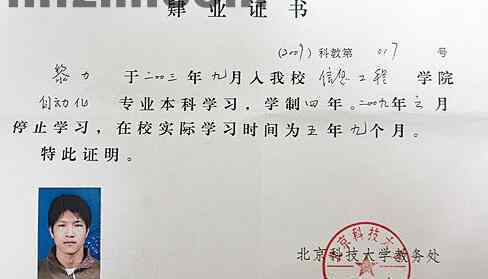 肄业证书
(2009) 科教第 017 号
黎力 于二〇〇三年九月入我校 信息工程 学院
自动化 专业本科学习，学制四年。二〇〇九年六月
停止学习，在校实际学习时间为五年九个月。
特此证明。
北京科技大学教务处
京科技大